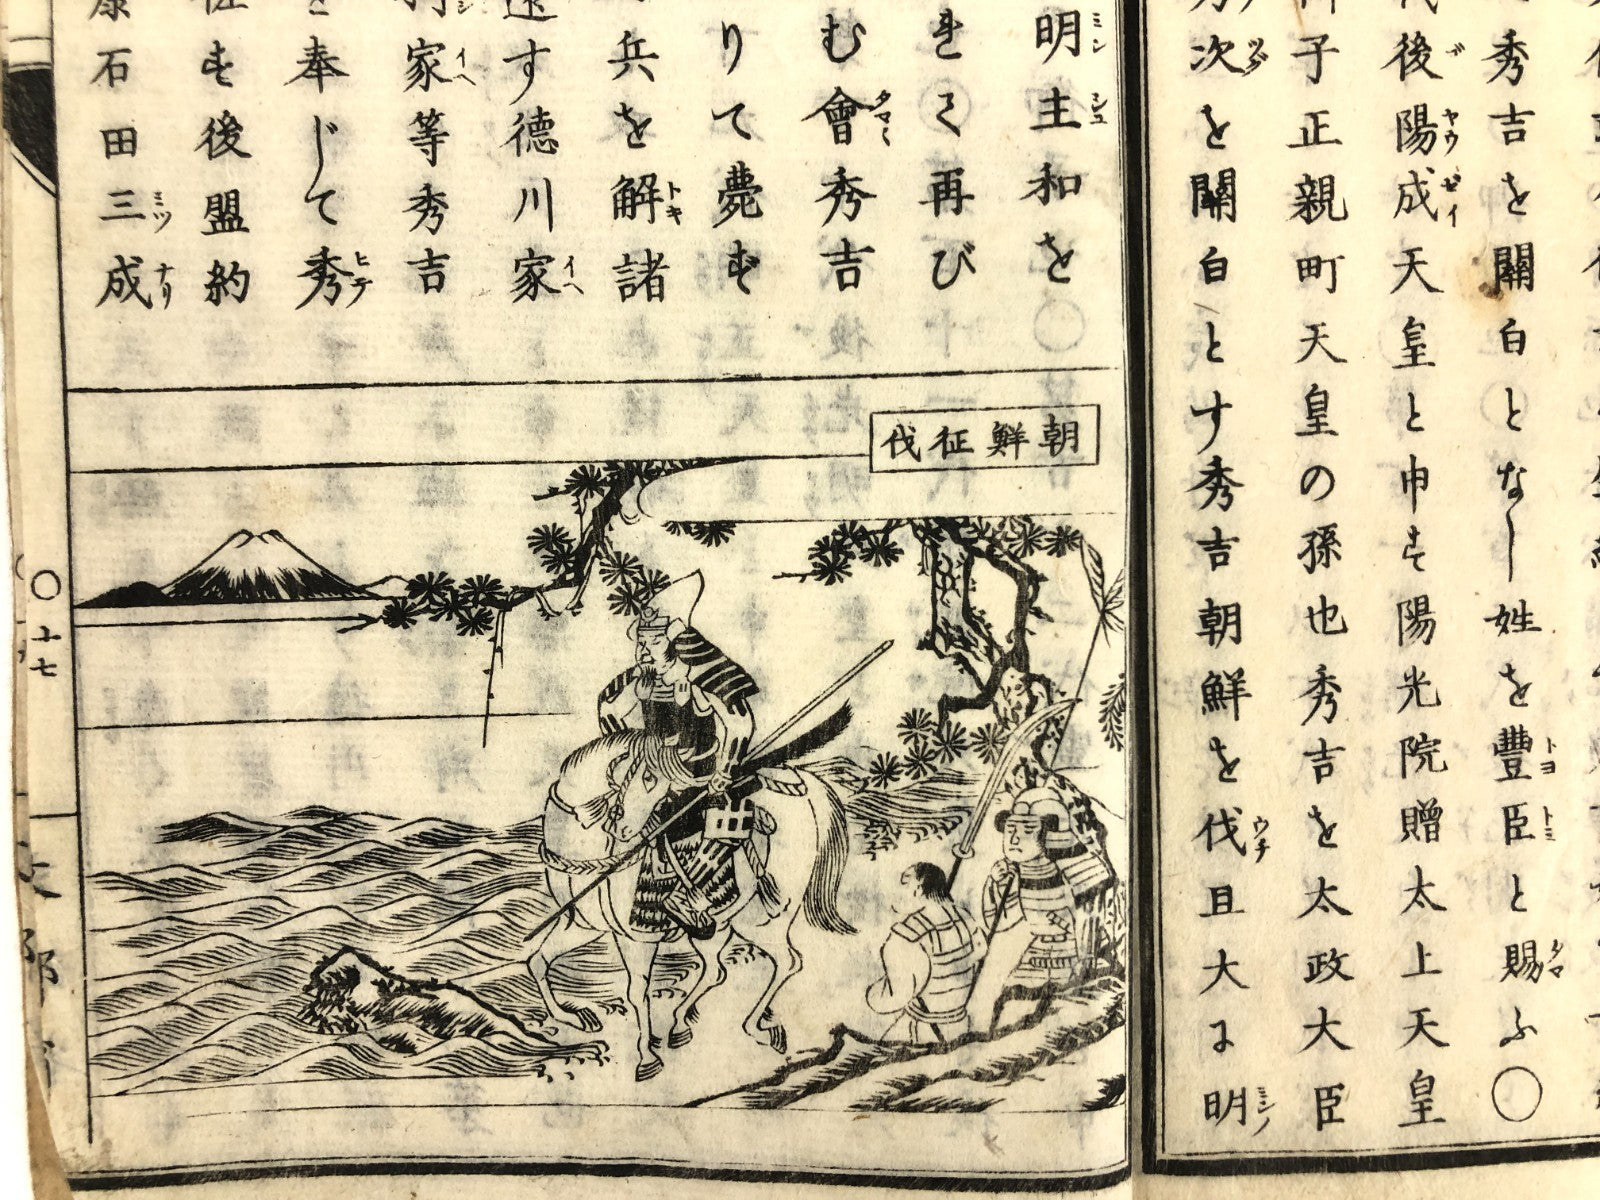 秀吉を關白となし姓を豐臣と賜ふ〇
後陽成天皇と申す陽光院贈太上天皇
子正親町天皇の孫也秀吉を太政大臣
次を關白とす秀吉朝鮮を伐且大に明
明主和を
再び
む會秀吉
りて薨ず
兵を解諸
す徳川家
家等秀吉
奉じて秀
す後盟約
石田三成
朝鮮征伐
〇十七